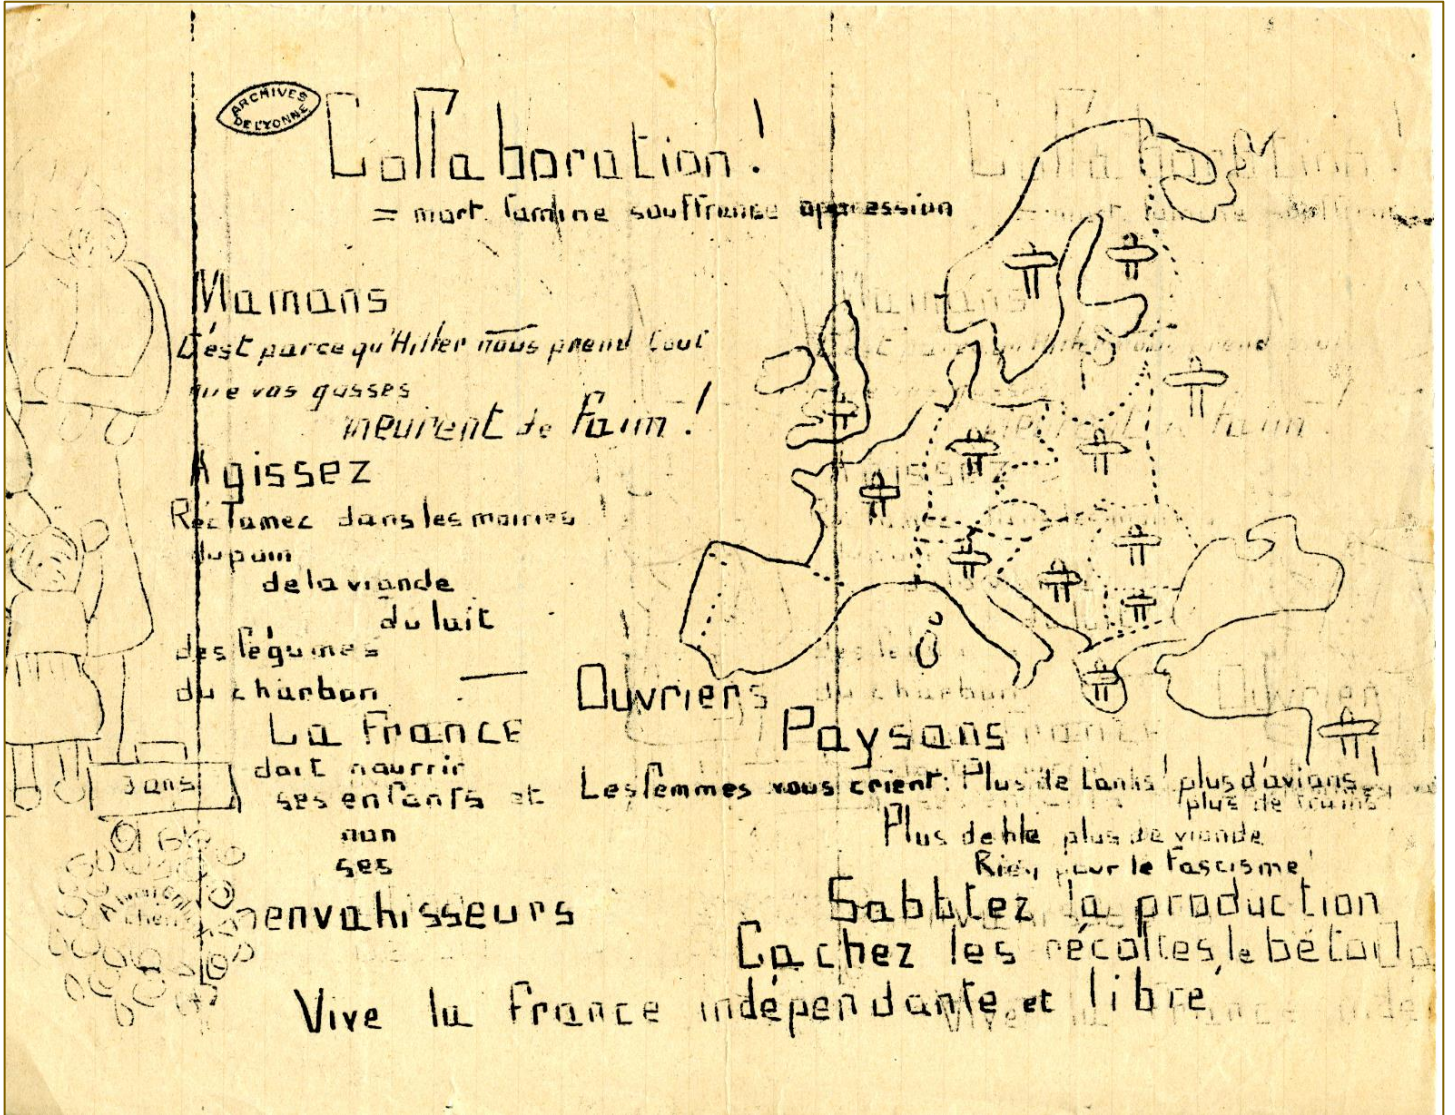 ARCHIVES
DE L'YONNE
Collaboration!
= mort famine souffrance oppression
Mamans
C'est parce qu'Hitler nous prend tout
que vos gosses
meurent de faim!
Agissez
Réclamez dans les mairies
du pain
de la viande
du lait
des légumes
du charbon
La France
doit nourrir
ses enfants et
non
ses
envahisseurs
3 ans
Ouvriers
Paysans
Les femmes vous crient: Plus de tanks! plus d'avions!
plus de trains
Plus de blé plus de viande
Rien pour le fascisme!
Sabbtez la production
Cachez les récoltes, le bétail
Vive la France indépendante et libre